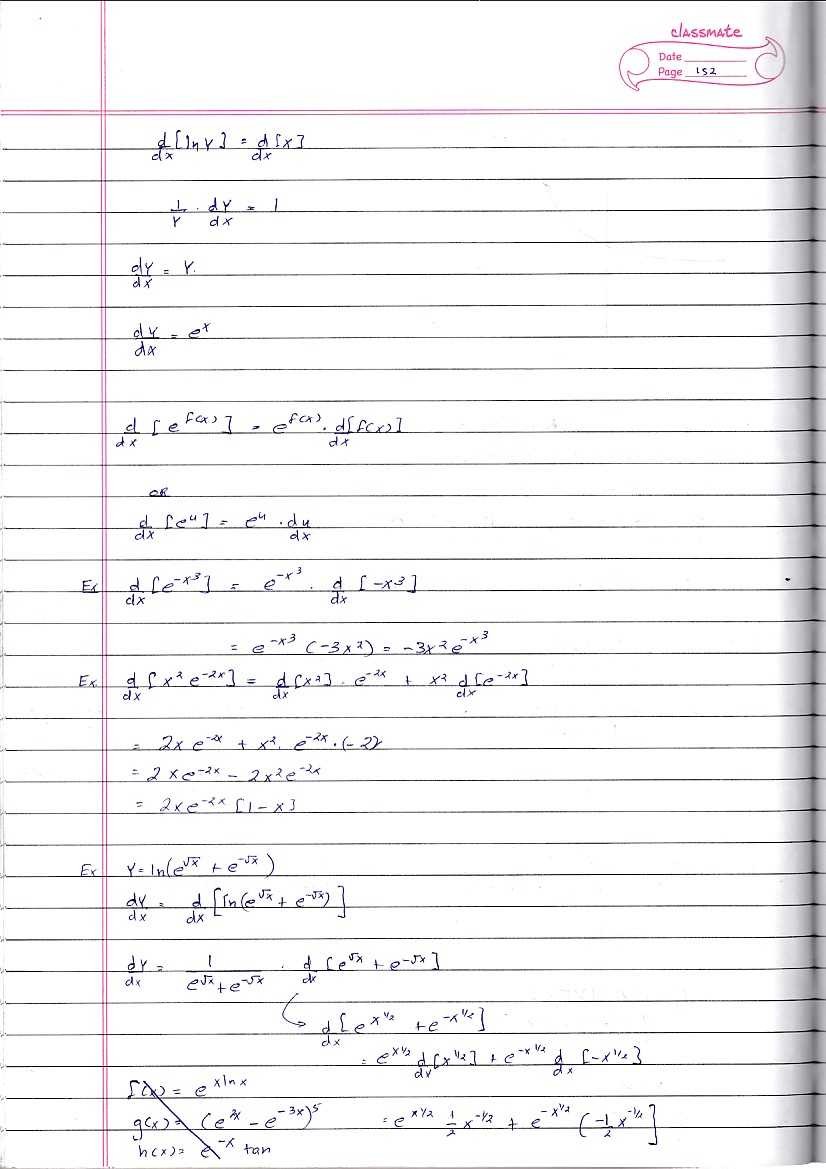 classmate
Date
Page 152
d/dx [ln Y] = d/dx [x]
1/Y · dY/dx = 1
dY/dx = Y.
dY/dx = e^x
d/dx [e^f(x)] = e^f(x) · d/dx [f(x)]
OR
d/dx [e^u] = e^u · du/dx
Ex d/dx [e^-x^3] = e^-x^3 · d/dx [-x^3]
= e^-x^3 (-3x^2) = -3x^2 e^-x^3
Ex d/dx [x^2 e^-2x] = d/dx [x^2] · e^-2x + x^2 d/dx [e^-2x]
= 2x e^-2x + x^2 · e^-2x · (-2)
= 2x e^-2x - 2x^2 e^-2x
= 2x e^-2x [1-x]
Ex Y = ln(e^√x + e^-√x)
dY/dx = d/dx [ln(e^√x + e^-√x)]
dY/dx = 1/(e^√x + e^-√x) · d/dx [e^√x + e^-√x]
d/dx [e^x^1/2 + e^-x^1/2]
= e^x^1/2 d/dx [x^1/2] + e^-x^1/2 d/dx [-x^1/2]
f(x) = e^x ln x
g(x) = (e^2x - e^-3x)^5
= e^x^1/2 1/2 x^-1/2 + e^-x^1/2 (-1/2 x^-1/2]
h(x) = e^-x tan